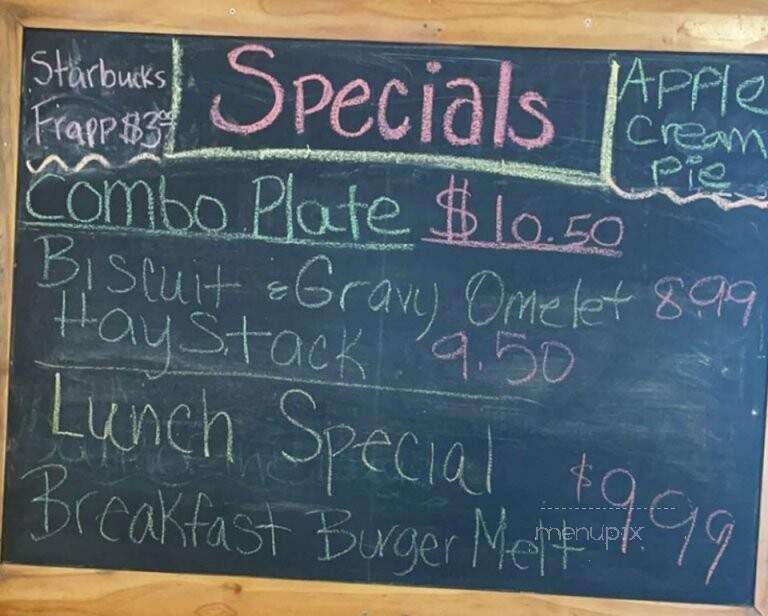 Starbucks
Frapp $3.00
Specials
Apple
cream
pie
Combo Plate $10.50
Biscuit & Gravy Omelet 8.99
Haystack 9.50
Lunch Special
Breakfast Burger Melt $9.99
menupix